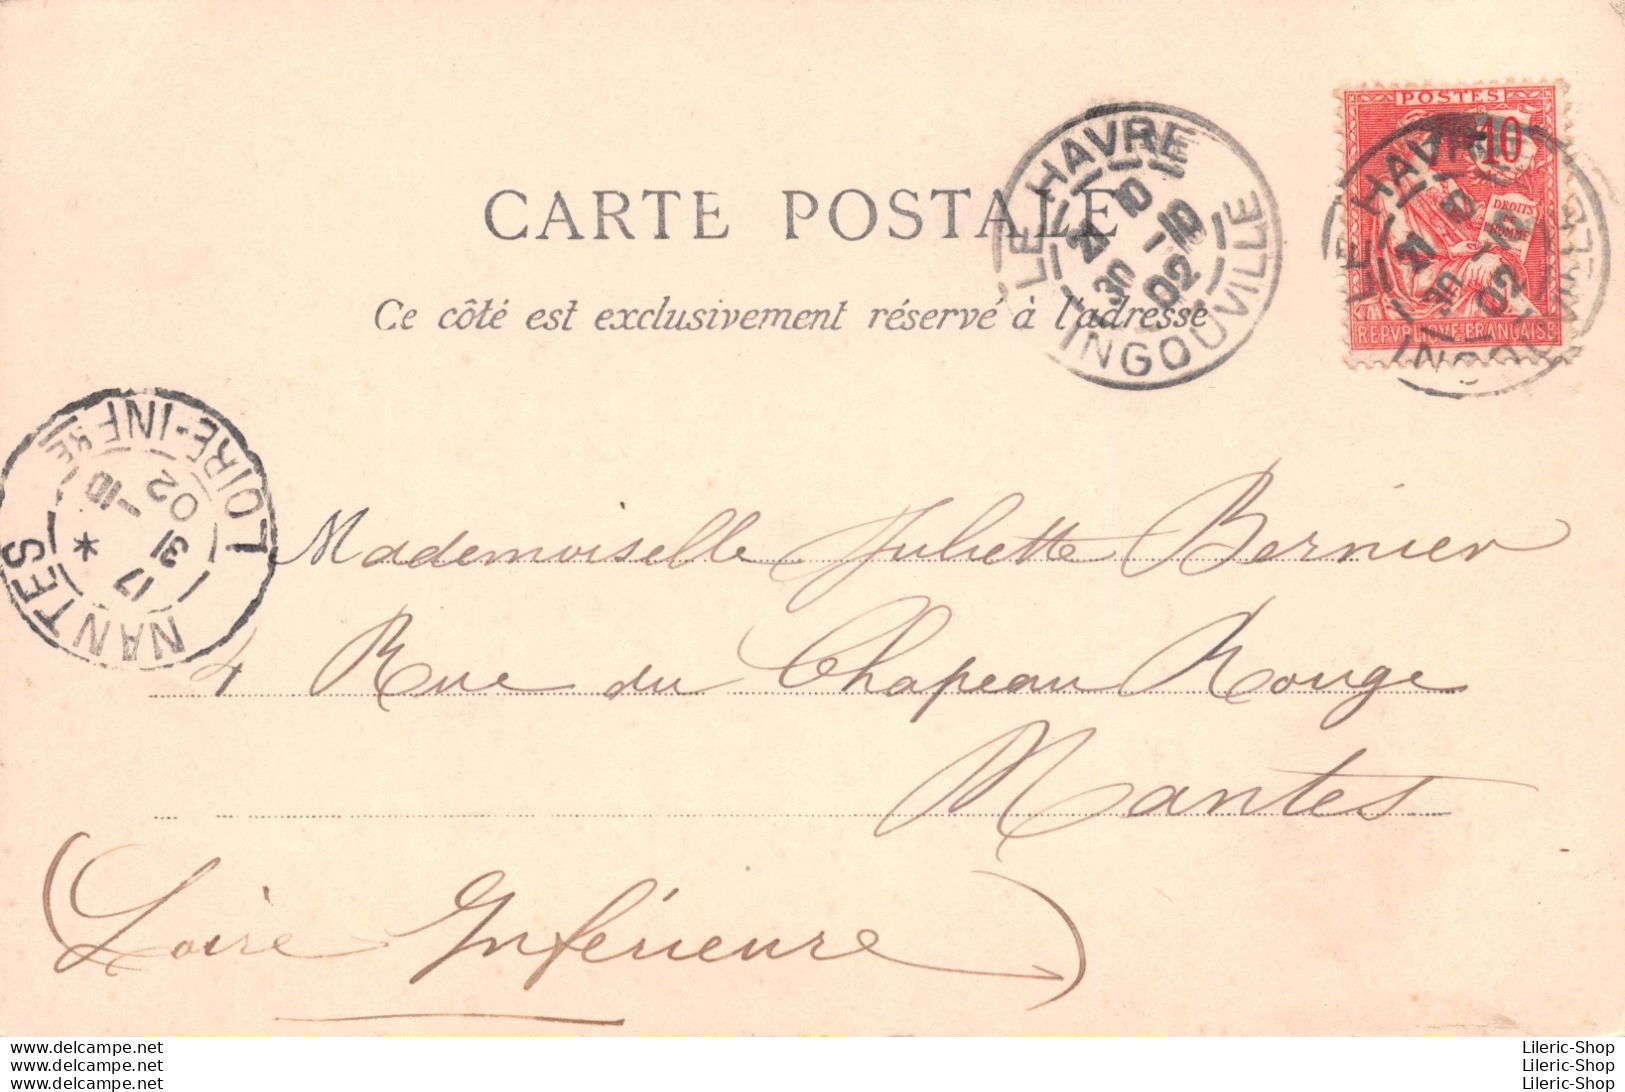 POSTES
10
DROITS
DE
L'HOMME
REPVBLIQVE FRANÇAISE
LE HAVRE
21 30 10 02
INGOUVILLE
LE HAVRE
21 30 10 02
CARTE POSTALE
Ce côté est exclusivement réservé à l'adresse
NANTES
17 31 -10 02
LOIRE-INFRE
Mademoiselle Juliette Bernier
4 Rue du Chapeau Rouge
Nantes
(Loire Inférieure)
www.delcampe.net
www.delcampe.net
www.delcampe.net
Lileric-Shop
Lileric-Shop
Lileric-Shop